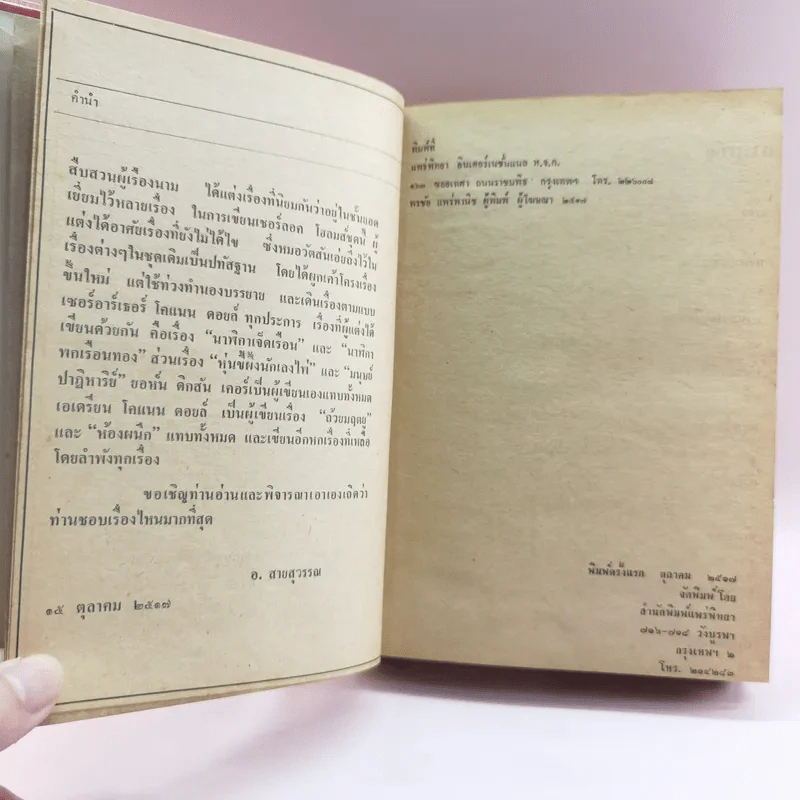 คำนำ
สืบสวนผู้เรืองนาม ได้แต่งเรื่องที่นิยมกันว่าอยู่ในชั้นยอด
เยี่ยมไว้หลายเรื่อง ในการเขียนเชอร์ลอค โฮลมส์ชุดนี้ ผู้
แต่งได้อาศัยเรื่องที่ยังไม่ได้ไข ซึ่งหมอวัตสันเอ่ยถึงไว้ใน
เรื่องต่างๆในชุดเดิมเป็นปทัสฐาน โดยได้ผูกเค้าโครงเรื่อง
ขึ้นใหม่ แต่ใช้ท่วงทำนองบรรยาย และเดินเรื่องตามแบบ
เซอร์อาร์เธอร์ โคแนน ดอยล์ ทุกประการ เรื่องที่ผู้แต่งได้
เขียนด้วยกัน คือเรื่อง “นาฬิกาเจ็ดเรือน” และ “นาฬิกา
พกเรือนทอง” ส่วนเรื่อง “หุ่นขี้ผึ้งนักเลงไพ่” และ “มนุษย์
ปาฏิหาริย์” ยอห์น ดิกสัน เคอร์เป็นผู้เขียนเองแทบทั้งหมด
เอเดรียน โคแนน ดอยล์ เป็นผู้เขียนเรื่อง “ถ้วยมฤตยู”
และ “ห้องผนึก” แทบทั้งหมด และเขียนอีกหกเรื่องที่เหลือ
โดยลำพังทุกเรื่อง
ขอเชิญท่านอ่านและพิจารณาเอาเองเถิดว่า
ท่านชอบเรื่องไหนมากที่สุด
อ. สายสุวรรณ
๑๕ ตุลาคม ๒๕๑๗
พิมพ์ที่
แพร่พิทยา อินเตอร์เนชั่นแนล ห.จ.ก.
๑๖๓ ซอยเทศา ถนนราชบพิธ กรุงเทพฯ โทร. ๒๒๖๐๐๘
พรชัย แพร่พานิช ผู้พิมพ์ ผู้โฆษณา ๒๕๑๗
พิมพ์ครั้งแรก ตุลาคม ๒๕๑๗
จัดพิมพ์โดย
สำนักพิมพ์แพร่พิทยา
๗๑๖-๗๑๘ วังบูรพา
กรุงเทพฯ ๒
โทร. ๒๑๔๒๘๓